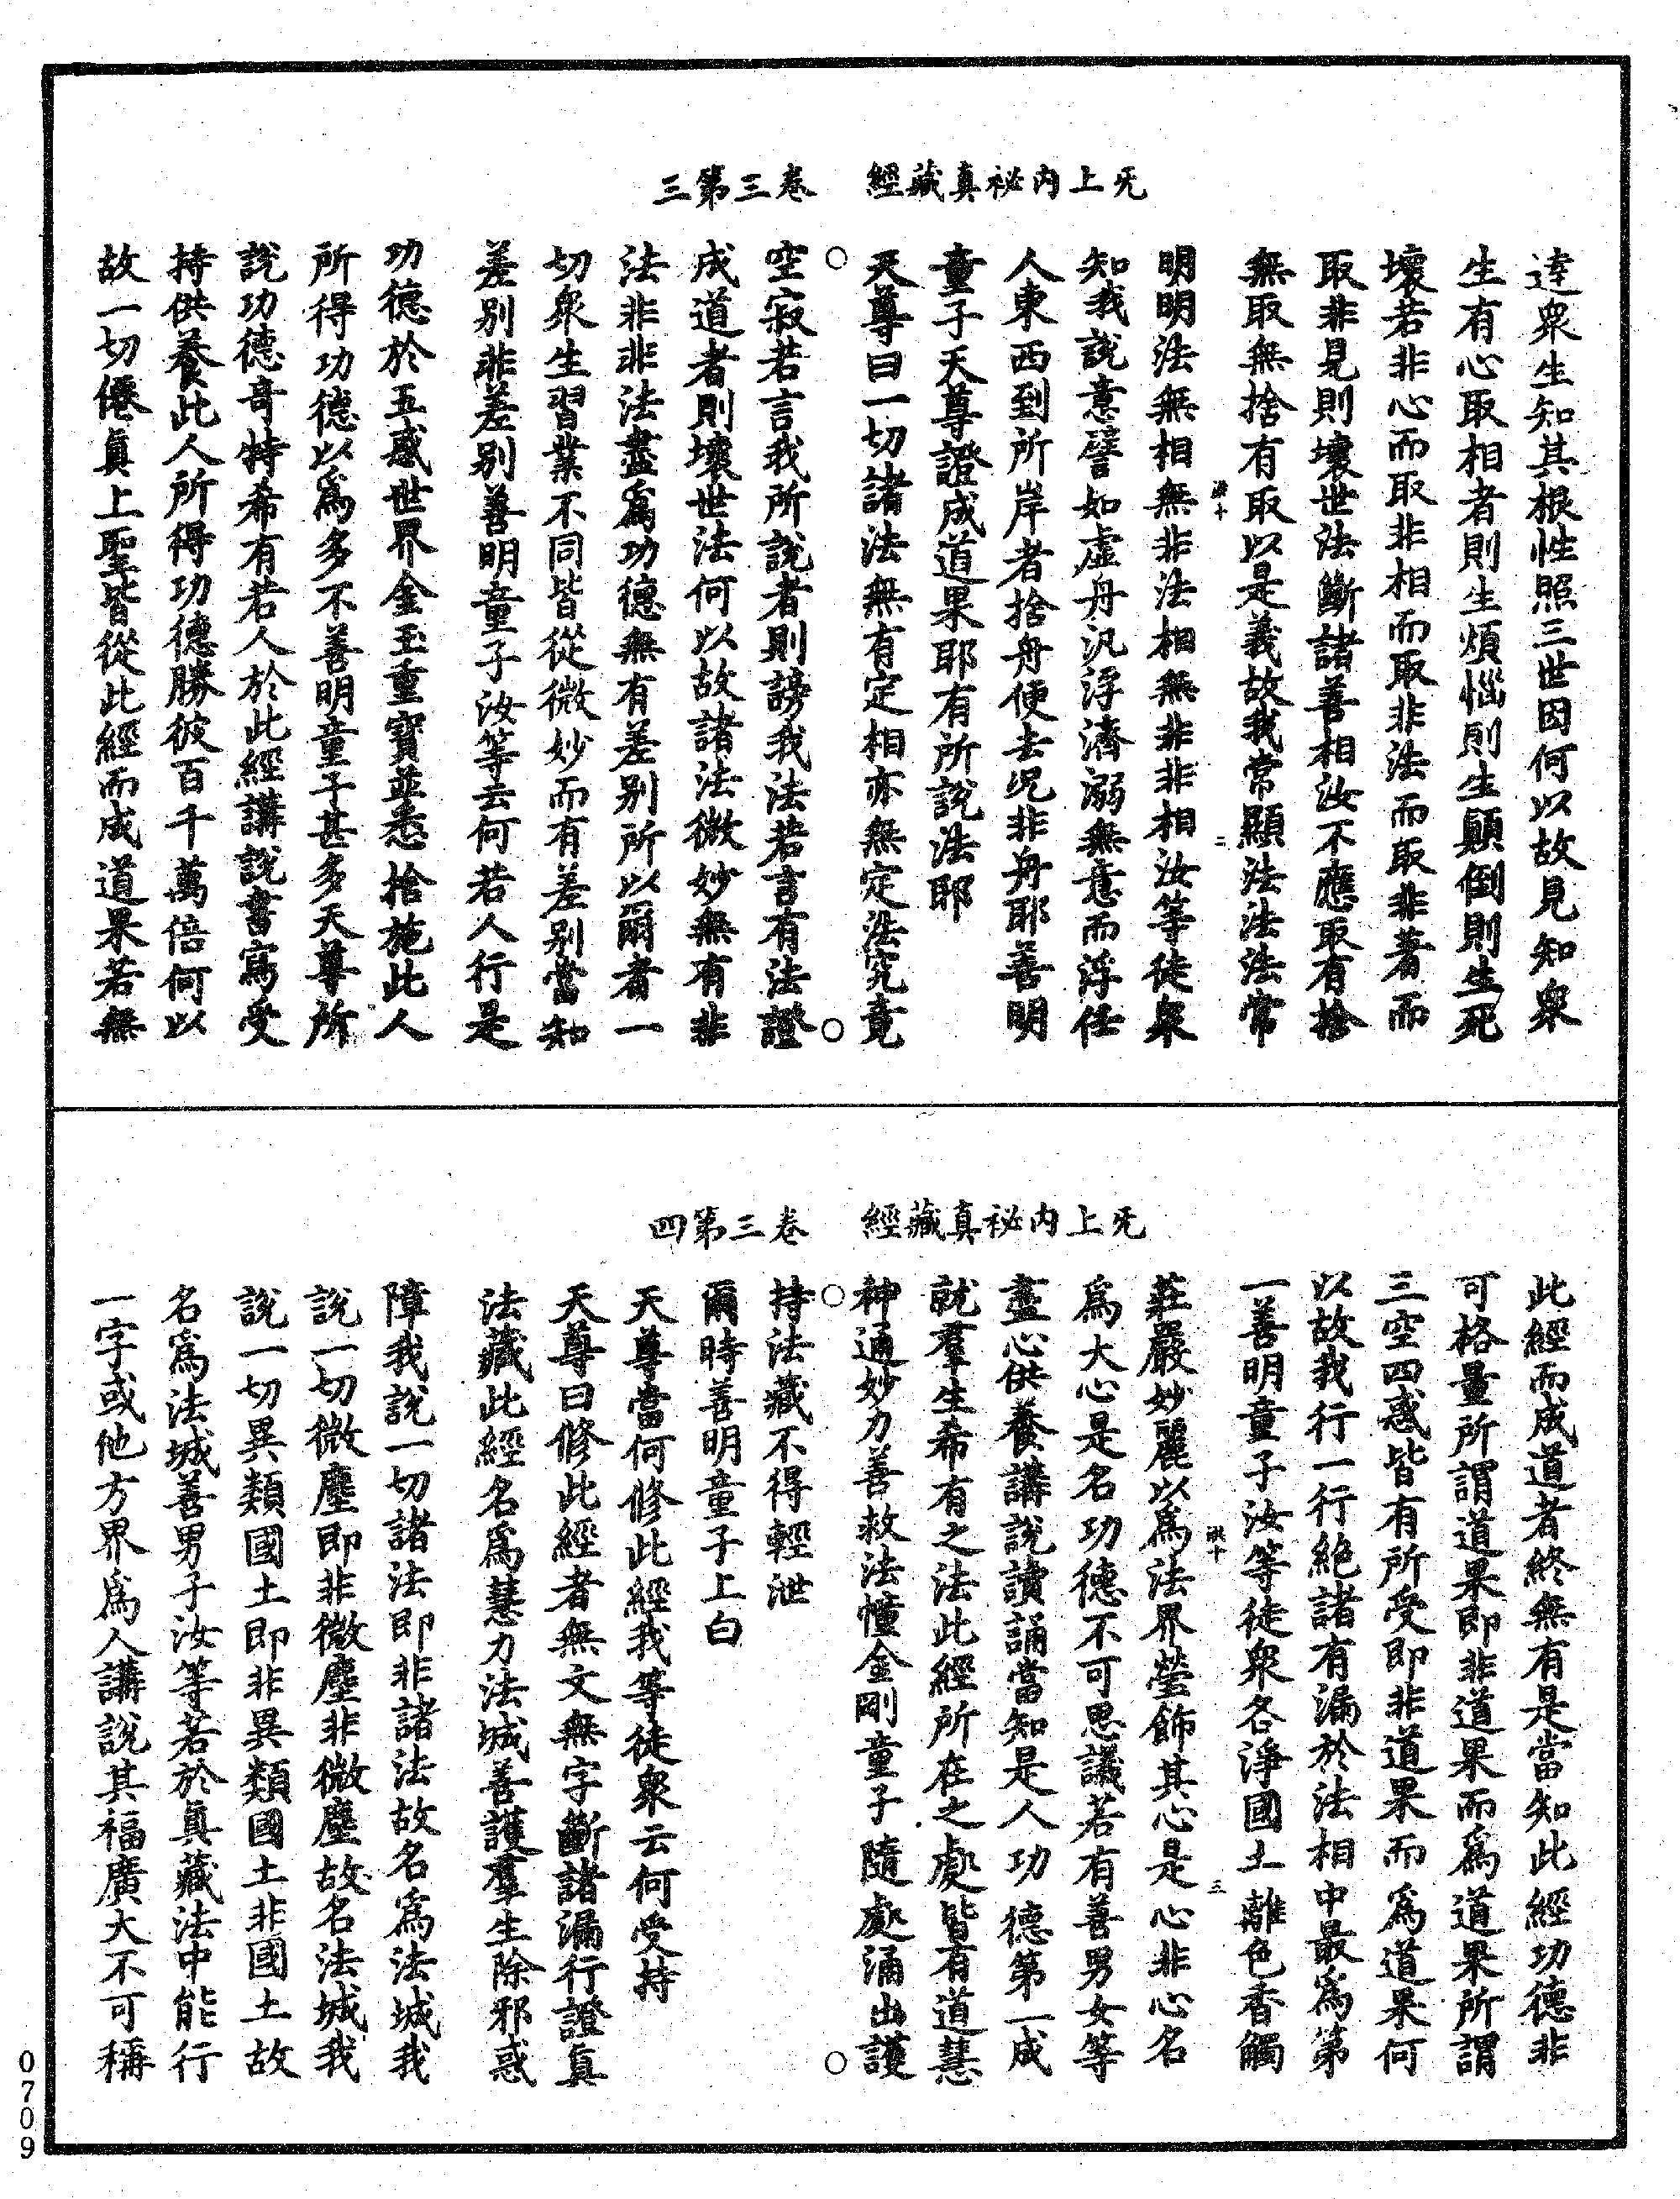 无上內祕真藏經　卷三第三
達衆生知其根性照三世因何以故見知衆
生有心取相者則生煩惱則生顛倒則生死
壞若非心而取非相而取非法而取非著而
取非見則壞世法斷諸善相汝不應取有捨
無取無捨有取以是義故我常顯法法法常
明明法無相無非法相無非非相汝等徒衆
知我說意譬如虛舟汎浮濟溺無意而浮任
人東西到所岸者捨舟便去況非舟耶善明
童子天尊證成道果耶有所說法耶
天尊曰一切諸法無有定相亦無定法究竟
空寂若言我所說者則謗我法若言有法證
成道者則壞世法何以故諸法微妙無有非
法非非法盡爲功德無有差别所以爾者一
切衆生習業不同皆從微妙而有差别當知
差别非差别善明童子汝等云何若人行是
功德於五惑世界金玉重寶並悉捨施此人
所得功德以爲多不善明童子甚多天尊所
說功德奇特希有若人於此經講說書寫受
持供養此人所得功德勝彼百千萬倍何以
故一切僊真上聖皆從此經而成道果若無
无上內祕真藏經　卷三第四
此經而成道者終無有是當知此經功德非
可格量所謂道果即非道果而爲道果所謂
三空四惑皆有所受即非道果而爲道果何
以故我行一行絶諸有漏於法相中最爲第
一善明童子汝等徒衆各淨國土離色香觸
莊嚴妙麗以爲法界瑩飾其心是心非心名
爲大心是名功德不可思議若有善男女等
盡心供養講說讀誦當知是人功德第一成
就羣生希有之法此經所在之處皆有道慧
神通妙力善救法幢金剛童子隨處涌出護
持法藏不得輕泄
爾時善明童子上白
天尊當何修此經我等徒衆云何受持
天尊曰修此經者無文無字斷諸漏行證真
法藏此經名爲慧力法城善護羣生除邪惑
障我說一切諸法即非諸法故名爲法城我
說一切微塵即非微塵非微塵故名法城我
說一切異類國土即非異類國土非國土故
名爲法城善男子汝等若於真藏法中能行
一字或他方界爲人講說其福廣大不可稱
0709